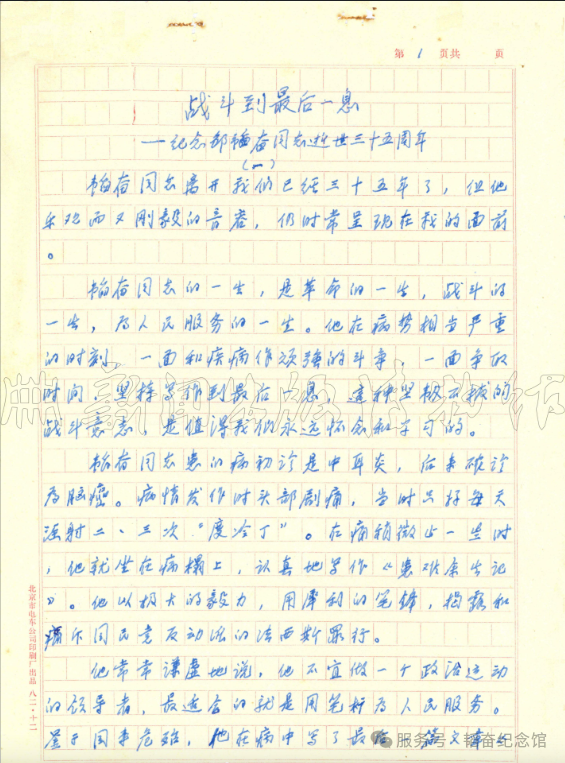 第 1 页共 页
战斗到最后一息
——纪念邹韬奋同志逝世三十五周年
(一)
韬奋同志离开我们已经三十五年了，但他
乐观而又刚毅的音容，仍时常呈现在我的面前
。
韬奋同志的一生，是革命的一生，战斗的
一生，为人民服务的一生。他在病势相当严重
的时刻，一面和疾病作顽强的斗争，一面争取
时间，坚持写作到最后一息，这种坚韧不拔的
战斗意志，是值得我们永远怀念和学习的。
韬奋同志患的病初诊是中耳炎，后来确诊
为脑癌。病情发作时头部剧痛，当时只好每天
注射二、三次“度冷丁”。在痛稍微止一些时
，他就坐在病榻上，认真地写作《患难余生记
》。他以极大的毅力，用犀利的笔锋，揭露和
痛斥国民党反动派的法西斯罪行。
他常常谦虚地说，他不宜做一个政治运动
的领导者，最适合的就是用笔杆为人民服务。
鉴于国事危殆，他在病中写了最后一篇文章——
北京市电车公司印刷厂出品 八二·十二
服务号·韬奋纪念馆